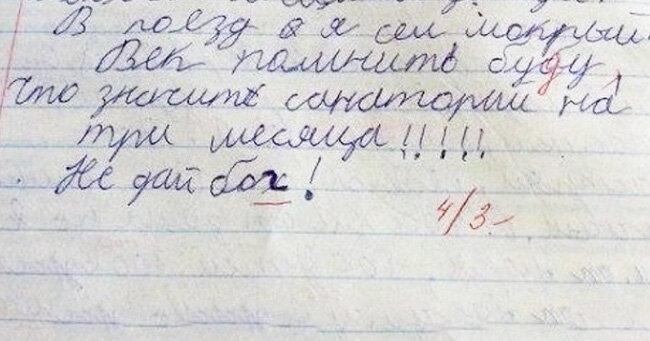 В поезд а я сел мокрый
Век помнить буду,
что значить санаторий на
три месяца!!!!!
Не дай бох!
4/3-